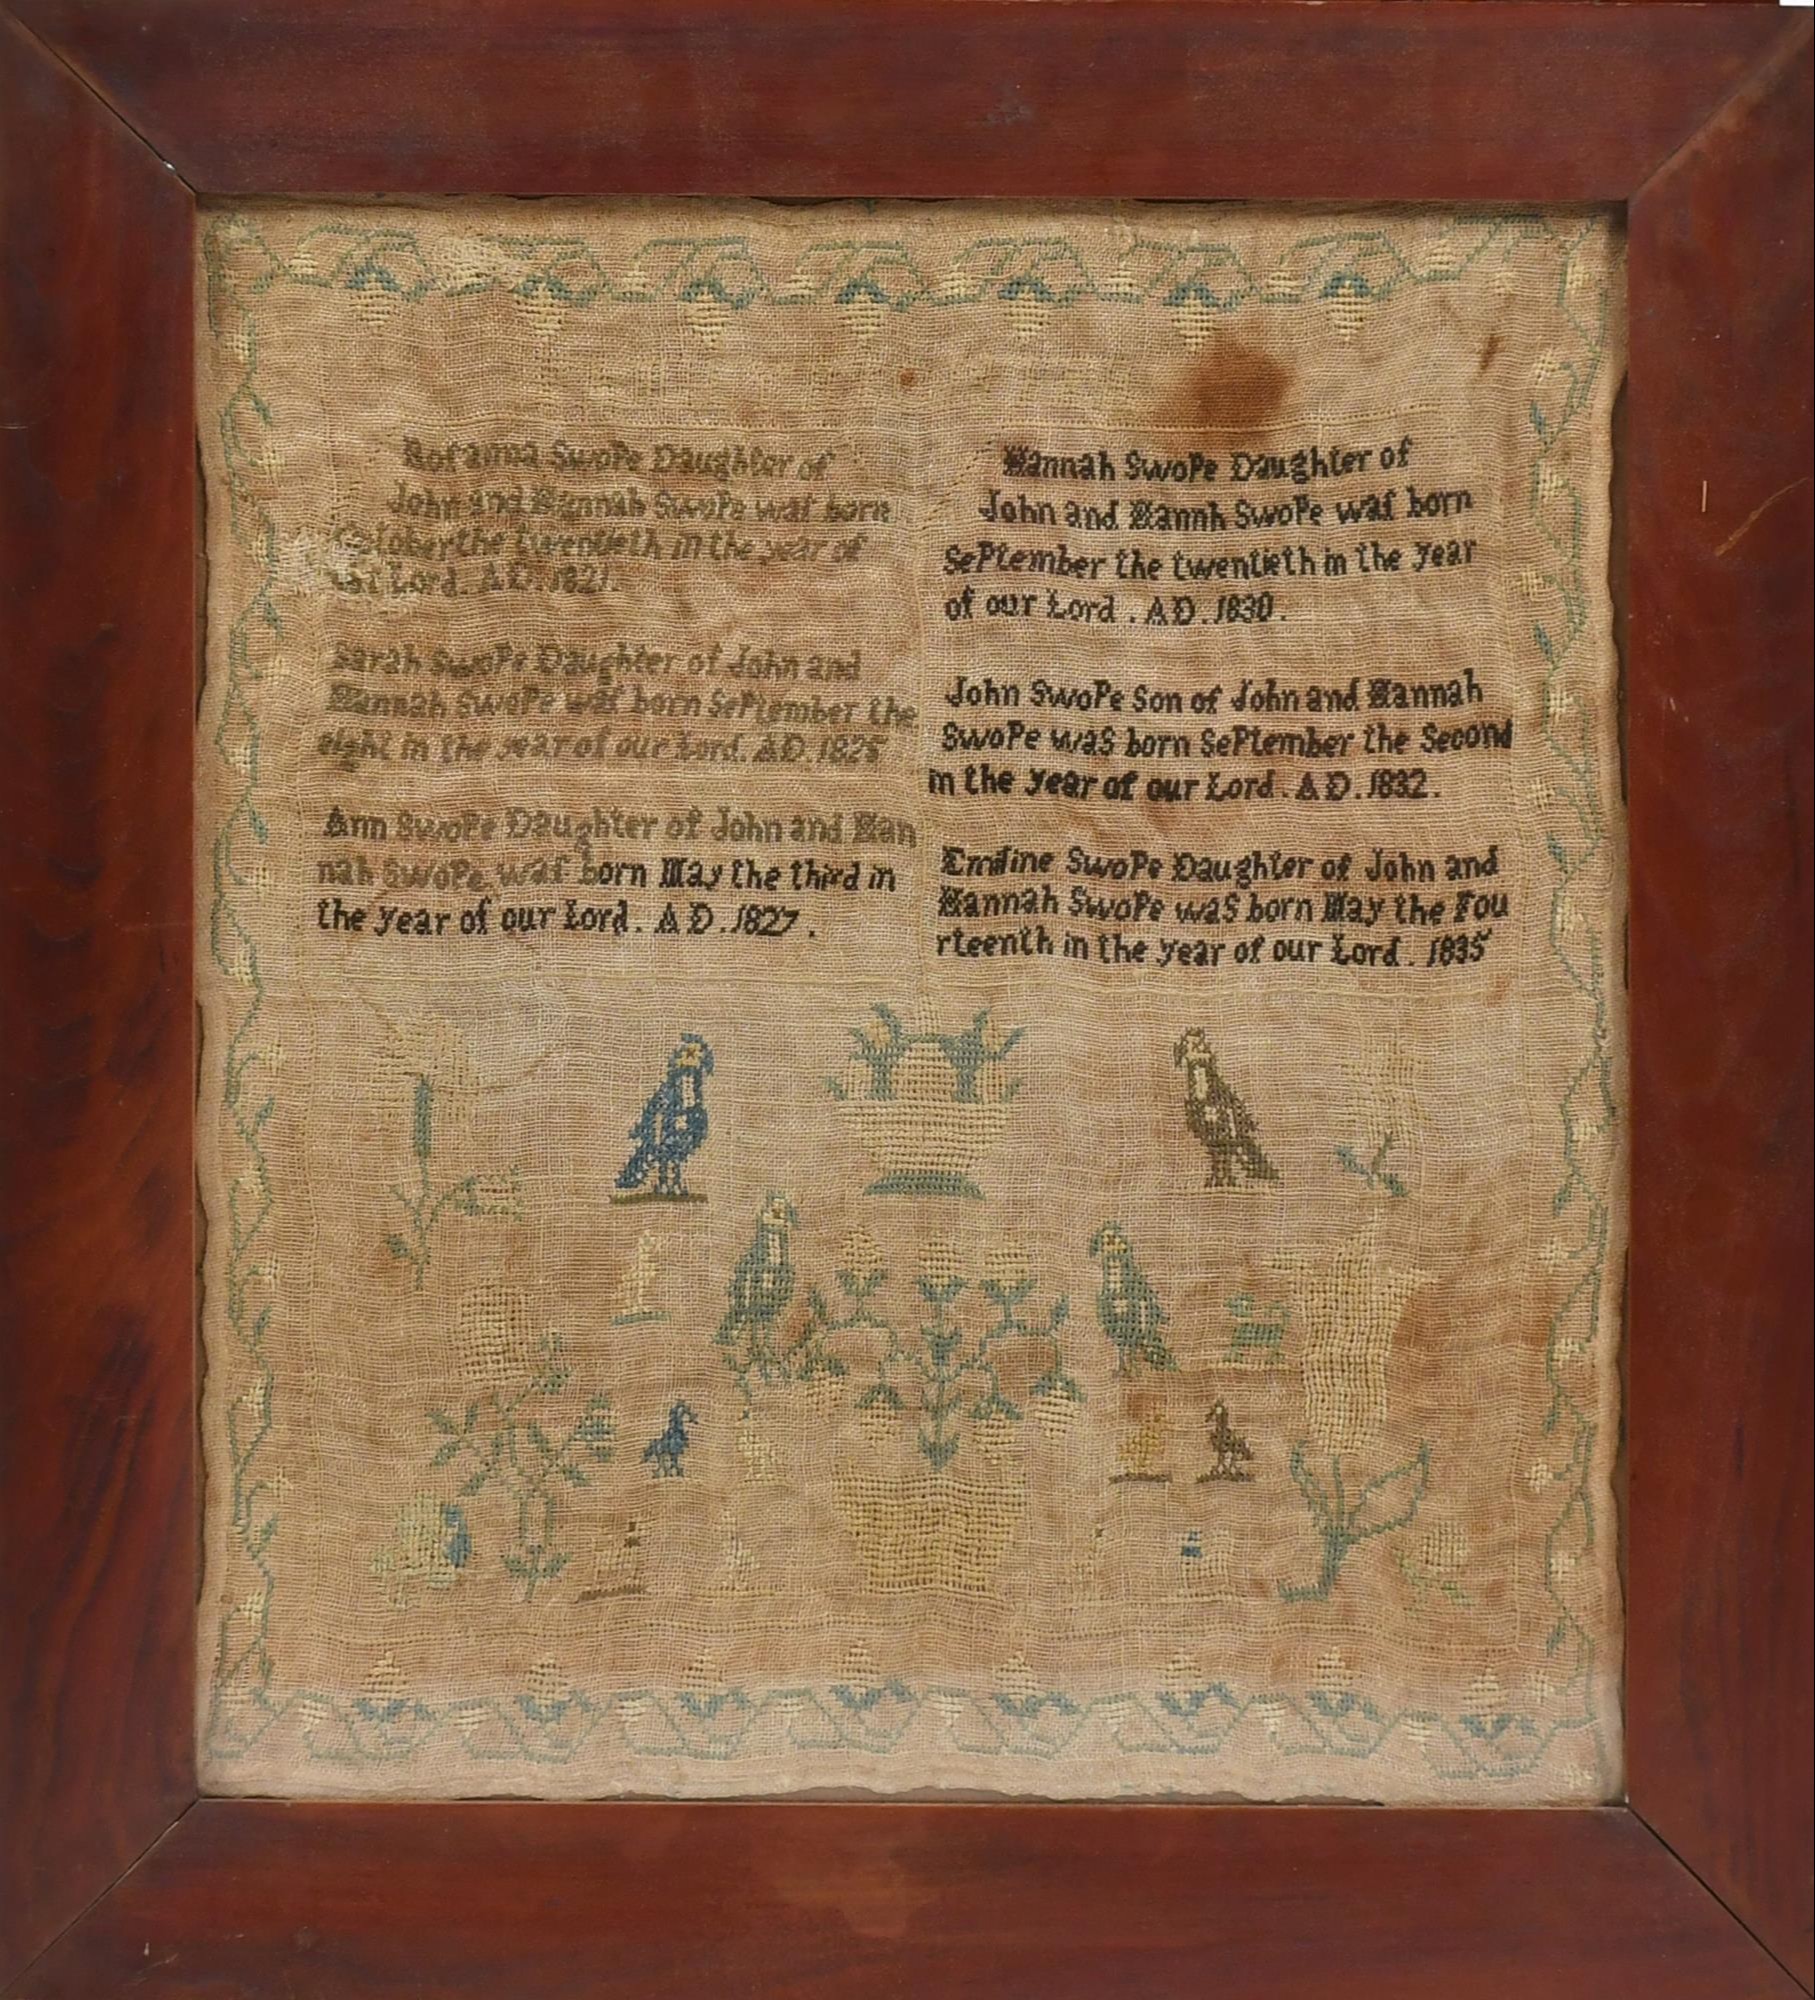 Rosanna Swope Daughter of
John and Hannah Swope was born
October the twentieth in the year of
Lord. AD. 1821.
Sarah Swope Daughter of John and
Hannah Swope was born September the
eight in the year of our Lord. AD. 1825
Ann Swope Daughter of John and Han
nah Swope was born May the third in
the year of our Lord. AD. 1827.
Hannah Swope Daughter of
John and Hannh Swope was born
September the twentieth in the year
of our Lord. AD. 1830.
John Swope Son of John and Hannah
Swope was born September the Second
in the year of our Lord. AD. 1832.
Emiline Swope Daughter of John and
Hannah Swope was born May the Fou
rteenth in the year of our Lord. 1835